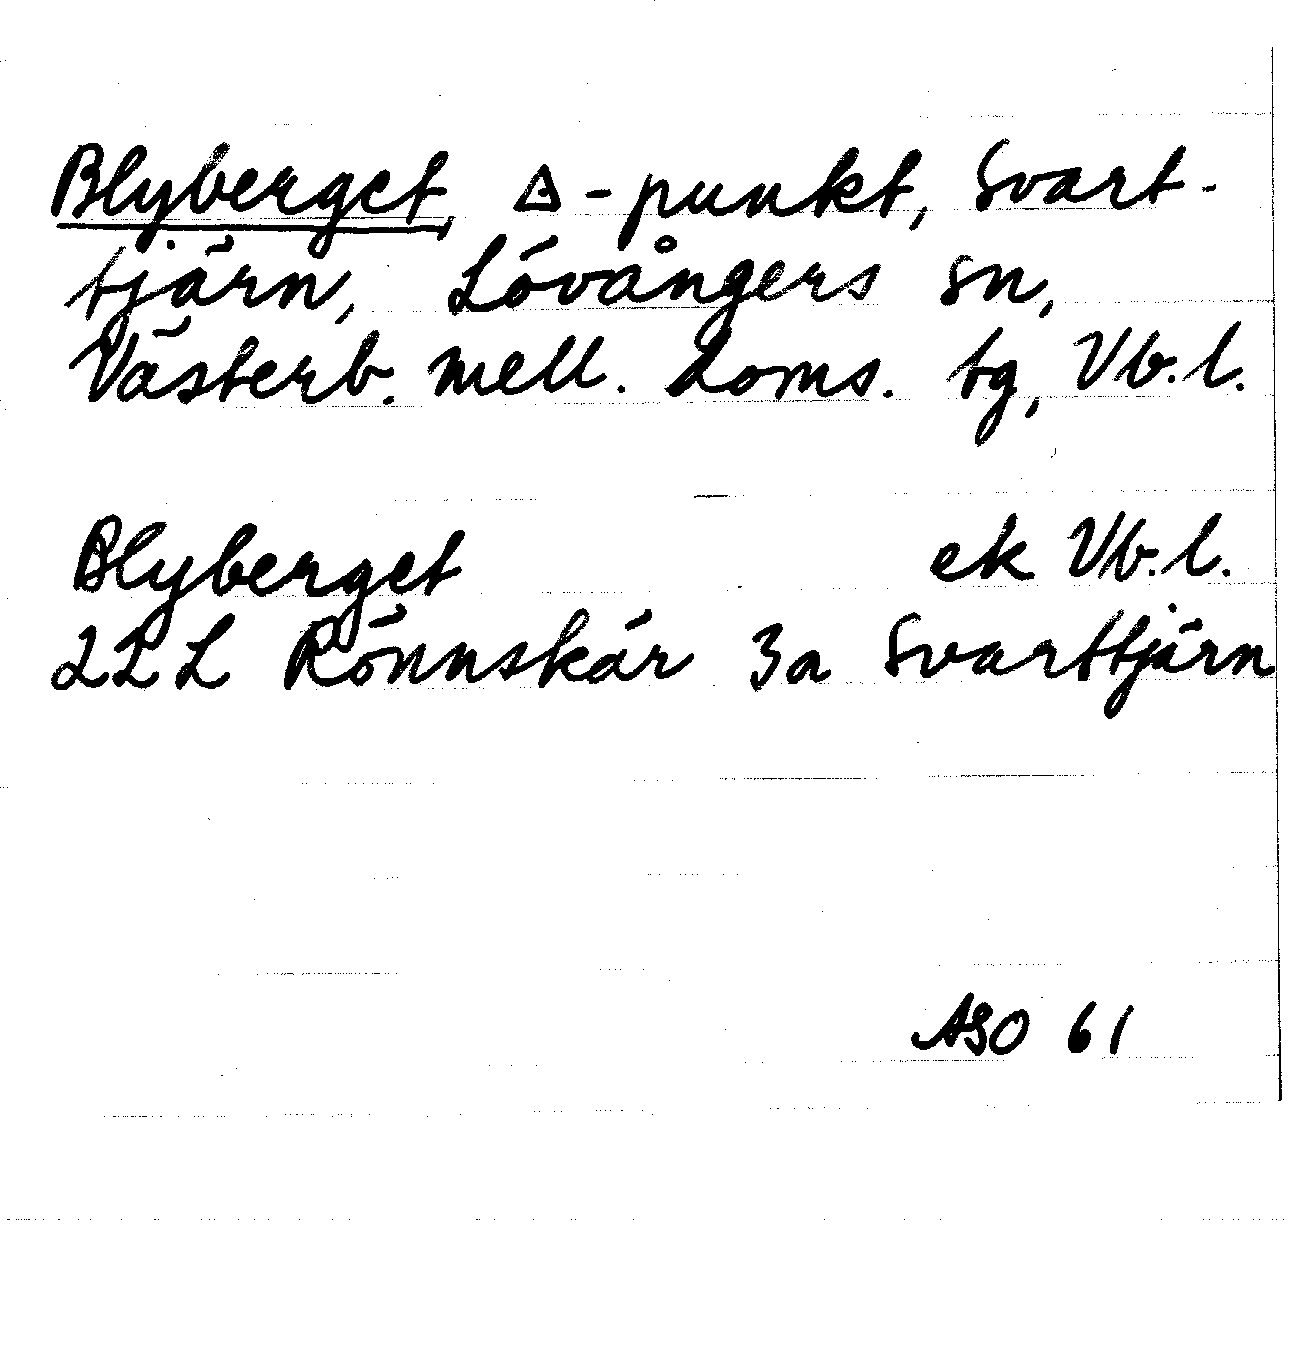 Blyberget, △-punkt, Svart-
tjärn, Lövångers sn,
Västerb. mell. doms. tg, Vb.l.
Blyberget ek Vb.l.
22L Rönnskär 3a Svarttjärn
ASO 61